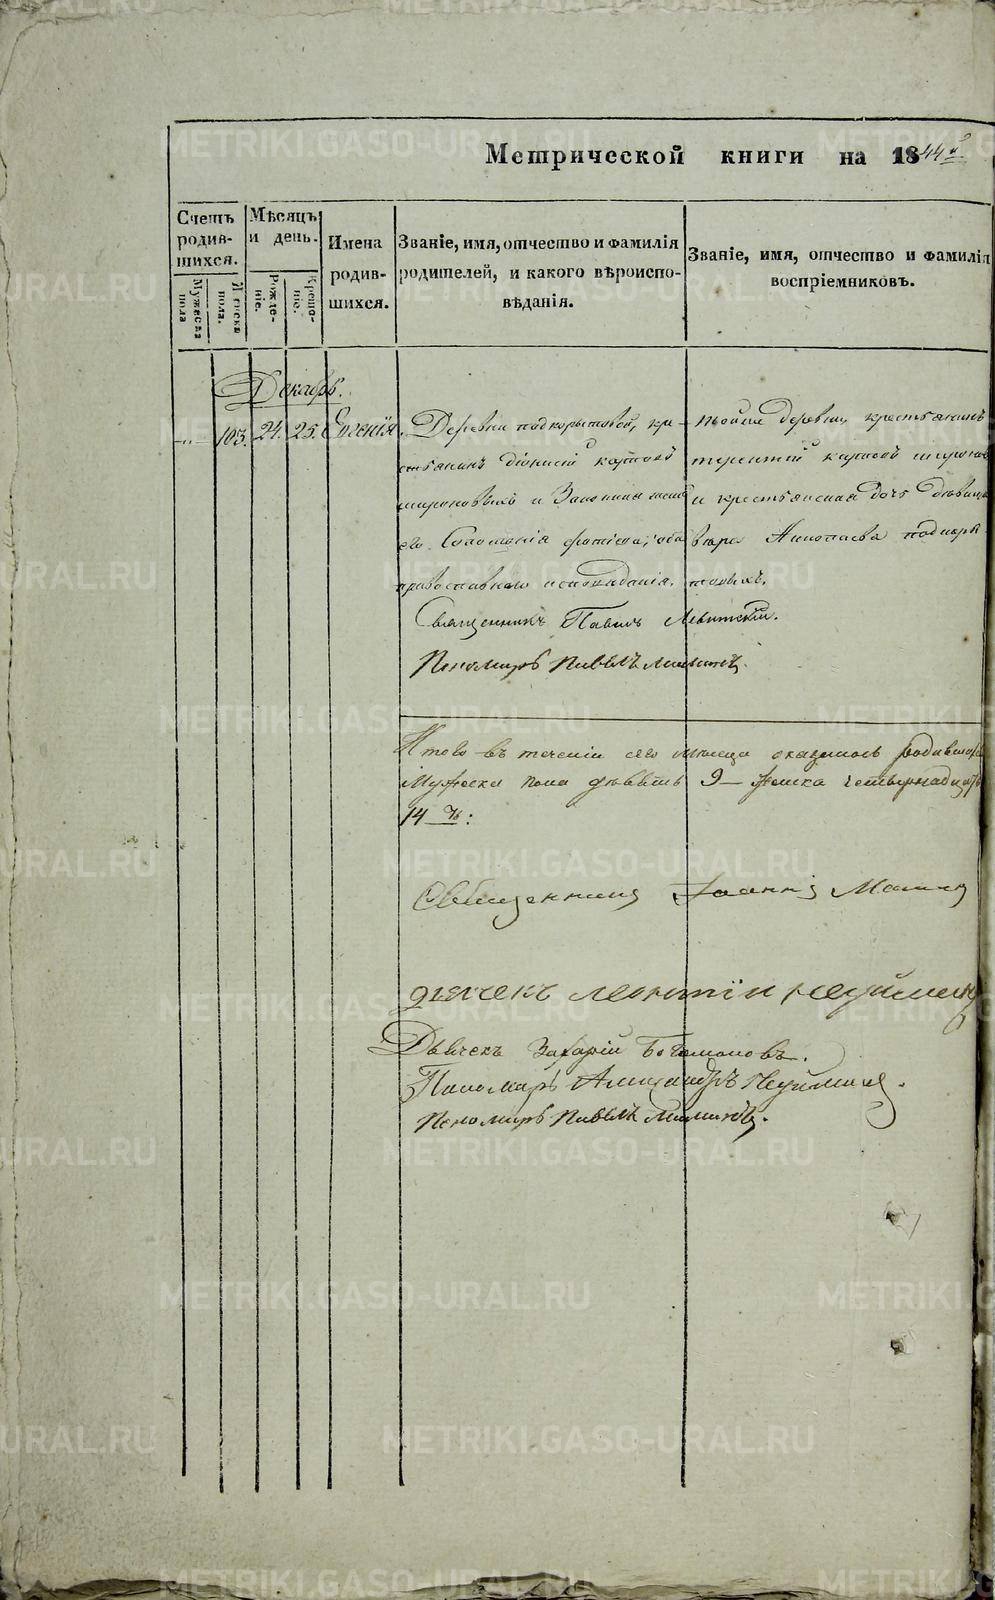 Метрической книги на 1844 й
Счетъ родив-шихся.
Мужеска пола
Женска пола.
Мѣсяцъ и день.
Рожде-ніе.
Креще-ніе.
Имена родив-шихся.
Званіе, имя, отчество и фамилія
родителей, и какого вѣроиспо-
вѣданія.
Званіе, имя, отчество и фамилія
воспріемниковъ.
Декабрь.
103. 24. 25. Евгенія.
Деревни подкорытовой, кре-
стьянинъ Діонисій
и Законная жена
его Соломонія Фотіева; оба
православнаго исповѣданія.
тойже деревни крестьянинъ
терентій
и крестьянская дочь дѣвица
Священникъ Павелъ Левитскій.
Пономарь Павелъ
Итого въ теченіи сего мѣсяца оказалось родившихся
Мужеска пола девять 9 – Женска четырнадцать
14 ть:
Священникъ Іоаннъ
Дьячекъ Леонтій
Дьячекъ Захарій Богомоловъ.
Пономарь Александръ
Пономарь Павелъ
METRIKI.GASO-URAL.RU